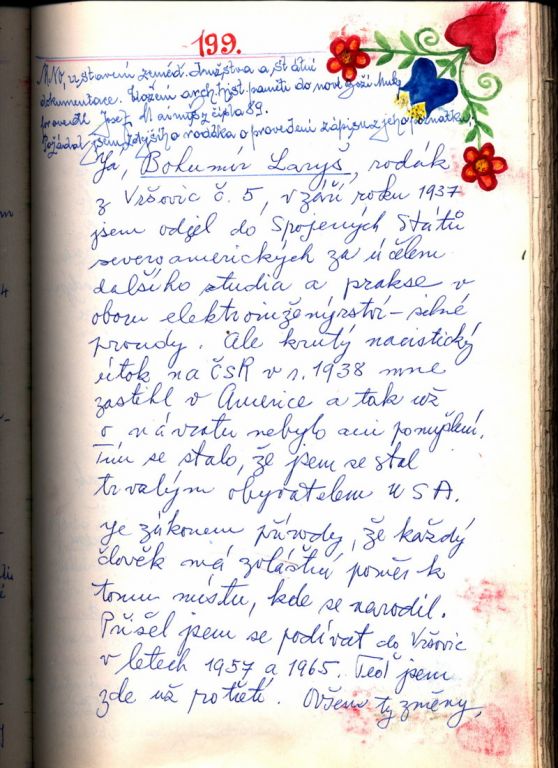 199.
MNV, ustavení zeměd. družstva a st átní
dokumentace. Vložení arch. hyst. pamětí do nové
provedl Josef čípla 89.
Požádal jsem o provedení zápisu z jeho
Já, Bohumír Laryš, rodák
z Vršovic č. 5, v září roku 1937
jsem odjel do Spojených Států
severoamerických za účelem
dalšího studia a prakse v
oboru elektroinženýrství – silné
proudy. Ale krutý nacistický
útok na ČSR v r. 1938 mne
zastihl v Americe a tak už
o návratu nebylo ani pomyšlení.
Tím se stalo, že jsem se stal
trvalým obyvatelem USA.
Je zákonem přírody, že každý
člověk má zvláštní poměr k
tomu místu, kde se narodil.
Přišel jsem se podívat do Vršovic
v letech 1957 a 1965. Teď jsem
zde už po třetí. Ovšem ty změny,